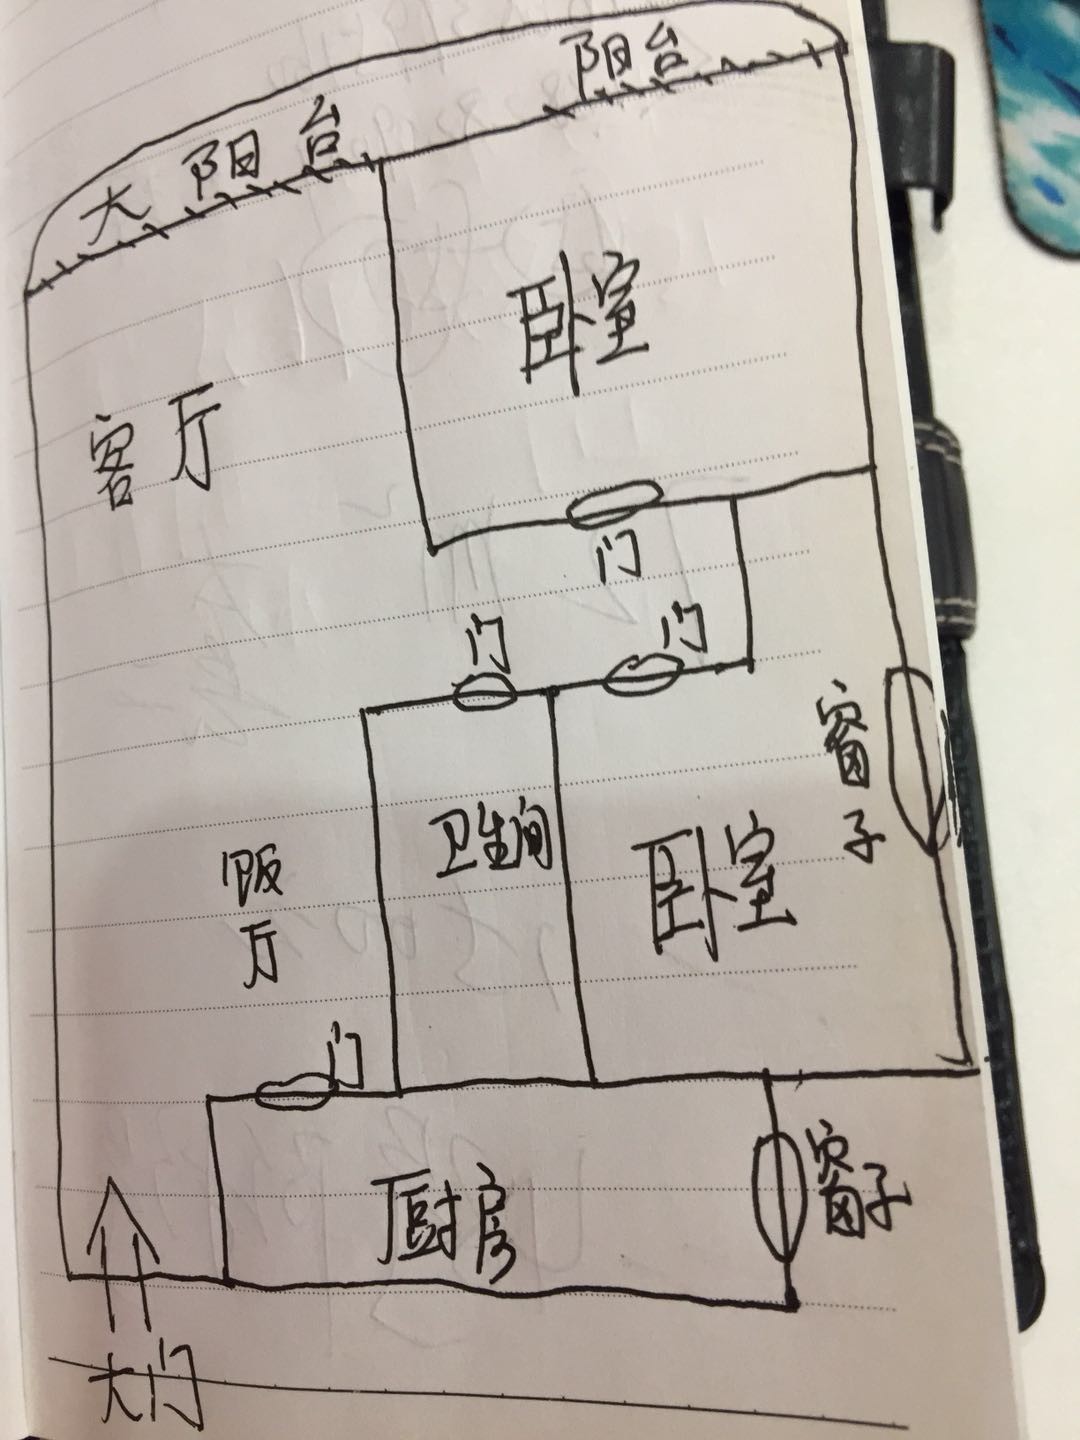 阳台
大阳台
卧室
客厅
门
门
门
窗子
卫生间
卧室
饭厅
门
厨房
窗子
大门